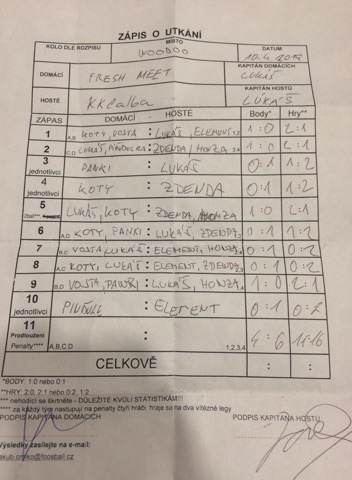 ZÁPIS O UTKÁNÍ
KOLO DLE ROZPISU MÍSTO DATUM
WOODOO 10.4 2019
DOMÁCÍ FRESH MEET KAPITÁN DOMÁCÍCH LUKÁŠ
HOSTÉ KAPITÁN HOSTŮ LUKÁŠ
ZÁPAS DOMÁCÍ HOSTÉ Body* Hry**
1 A,B KOTY, VOJTA : LUKÁŠ, ELEMENT 1,2 1:0 2:1
2 C,D LUKÁŠ, : ZDENDA, HONZA 3,4 1:0 2:1
3 jednotlivci PANKI : LUKÁŠ 0:1 1:2
4 jednotlivci KOTY : ZDENDA 0:1 1:2
5 LUKÁŠ, KOTY : ZDENDA, HONZA 1:0 2:1
6 A,D KOTY, PANKI : LUKÁŠ, ZDENDA 0:1 1:2
7 B,C VOJTA, LUKÁŠ : ELEMENT, HONZA 0:1 0:2
8 A,C KOTY, LUKÁŠ : ELEMENT, ZDENDA 2,3 0:1 0:2
9 B,D VOJTA, PANKI : LUKÁŠ, HONZA 1,4 1:0 2:1
10 jednotlivci : ELEMENT 0:1 0:2
11 Prodloužení Penalty**** A,B,C,D : 1,2,3,4 4:6 11:16
CELKOVĚ :
*BODY: 1:0 nebo 0:1
**HRY: 2:0, 2:1 nebo 0:2, 1:2
*** nehodící se škrtněte - DŮLEŽITÉ KVŮLI STATISTIKÁM!!!
**** za každý tým nastupují na penalty čtyři hráči, hraje se na dva vítězné legy
PODPIS KAPITÁNA DOMÁCÍCH PODPIS KAPITÁNA HOSTŮ
Výsledky zasílejte na e-mail: